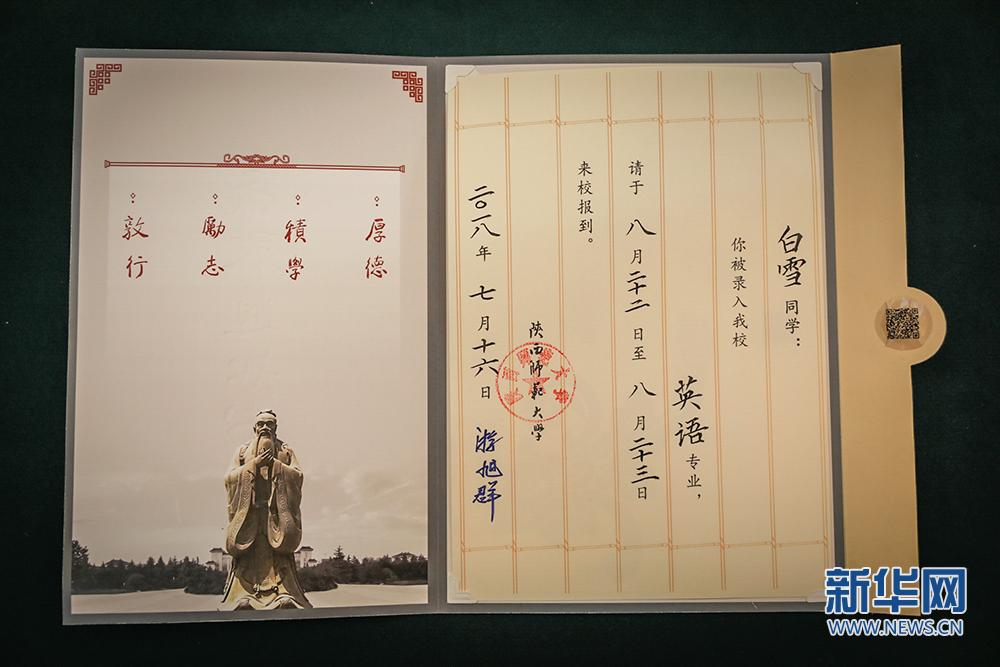 厚德
積學
勵志
敦行
白雪同学：
你被录入我校
英语专业，
请于八月二十二日至八月二十三日
来校报到。
陝西師範大學
二〇一八年七月十六日
游旭群
新华网
WWW.NEWS.CN